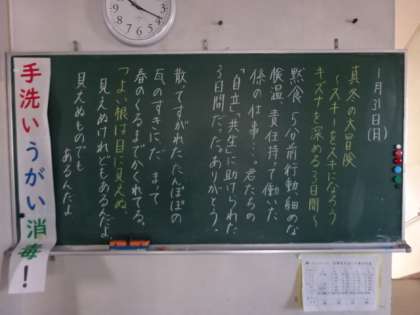 1月31日(月)
真冬の大冒険
~スキーを大スキになろう
キズナを深める3日間~
黙食、5分前行動、細めな
検温、責任持って働いた
係の仕事…。君たちの
「自立」「共生」に助けられた
3日間だった。ありがとう。
散ってすがれたたんぽぽの
瓦のすきにだまって
春のくるまでかくれてる、
つよい根は目に見えぬ。
見えぬけれどもあるんだよ、
見えぬものでも
あるんだよ
手洗いうがい消毒!